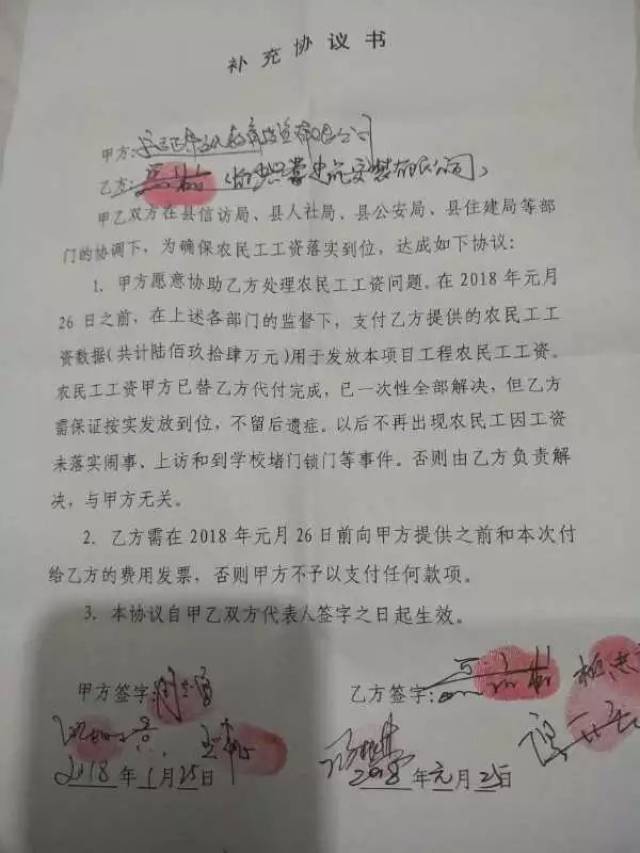 补充协议书
甲方:
乙方:
甲乙双方在县信访局、县人社局、县公安局、县住建局等部
门的协调下，为确保农民工工资落实到位，达成如下协议：
1. 甲方愿意协助乙方处理农民工工资问题。在 2018 年元月
26 日之前，在上述各部门的监督下，支付乙方提供的农民工工
资数据（共计陆佰玖拾肆万元）用于发放本项目工程农民工工资。
农民工工资甲方已替乙方代付完成，已一次性全部解决，但乙方
需保证按实发放到位，不留后遗症。以后不再出现农民工因工资
未落实闹事、上访和到学校堵门锁门等事件。否则由乙方负责解
决，与甲方无关。
2. 乙方需在 2018 年元月 26 日前向甲方提供之前和本次付
给乙方的费用发票，否则甲方不予以支付任何款项。
3. 本协议自甲乙双方代表人签字之日起生效。
甲方签字:
乙方签字:
2018 年 1 月 25 日
2018 年 元 月 25 日